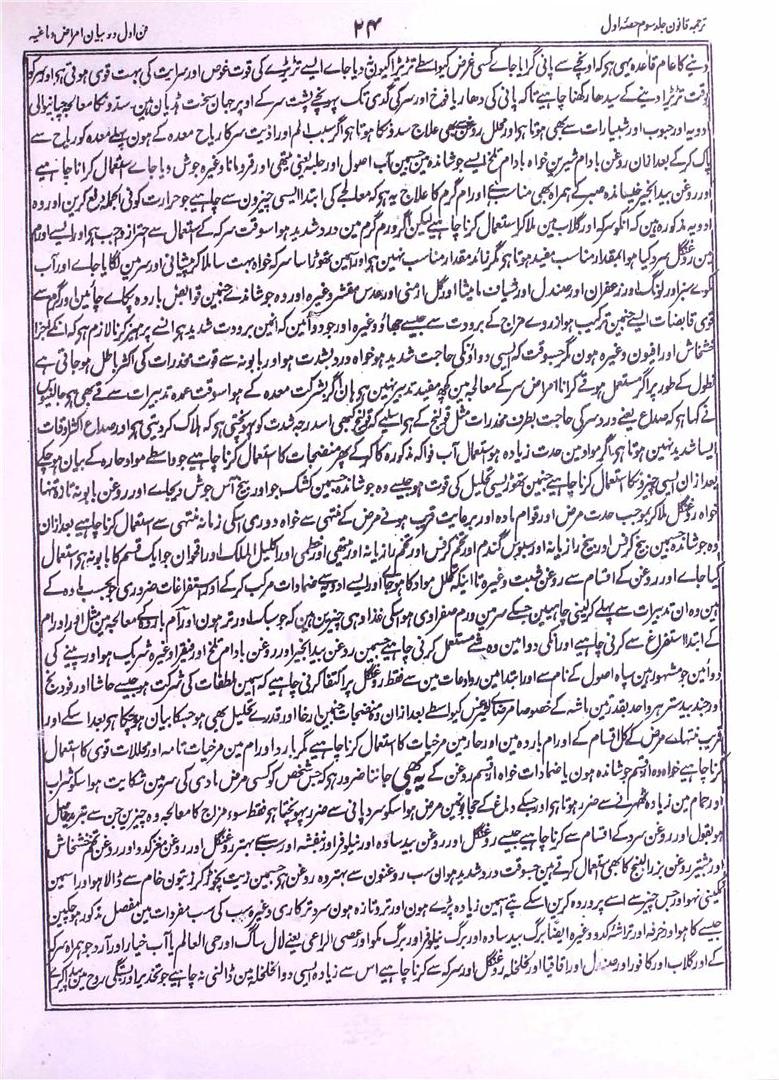 ترجمہ قانون جلد سوم حصۂ اول
۲۴
فن اول در بیان امراض دماغیہ
دینے کا عام قاعدہ یہی ہے کہ اونچے سے پانی گرایا جاے کسی غرض کیواسطے تریڑا کیوں دیا جاے ایسے تریڑے کی قوت غوص اور سرایت کی بہت قوی ہوتی ہو اور سر کو
وقت تریڑا دینے کے سیدھا رکھنا چاہیے تاکہ پانی کی دھار یافوخ اور سر کی گدی تک پہونچے پشت سر کے اوپر جہان سخت ہڈیان ہین۔ سدونکا معالجہ
ادویہ اور حبوب اور شبیارات سے بھی ہوتا ہو اور محلل روغن سے بھی علاج سدونکا ہوتا ہو اگر سبب الم اور اذیت سر کا ریاح معدہ کے ہون پہلے معدہ کو ریاح سے
پاک کر کے بعد ازان روغن بادام شیرین خواہ بادام تلخ ایسے جوشاندہ مین جسمین آب اصول اور حلبہ یعنی میتھی اور قردمانا وغیرہ جوش دیا جاے استعمال کرانا چاہیے
اور روغن بیدانجیر خیساندہ صبر کے ہمراہ بھی مناسب ہے اورام گرم کا علاج یہ ہو کہ معالجے کی ابتدا ایسی چیزون سے چاہیے جو حرارت کو فی الجملہ دفع کرین اور وہ
ادویہ مذکورہ ہین کہ انکو سرکہ اور گلاب مین ملا کر استعمال کرنا چاہیے لیکن اگر ورم گرم مین درد شدید ہو اسوقت سرکہ کے استعمال سے احتراز واجب ہو اور ایسے اورام
مین روغن گل سرد کیا ہوا بمقدار مناسب مفید ہوتا ہو مگر زائد مقدار مناسب نہین ہو اور ہمین تھوڑا سا سرکہ خواہ بہت سا ملا کر پیشانی اور سر مین لگایا جاے اور آب
مکوے سبز اور لونگ اور زعفران اور صندل اور شیاف مامیثا اور گل ارمنی اور عدس مقشر وغیرہ اور وہ جوشاندے جنمین قوابض باردہ پکاے جائین اورام گرم سے
قوی قابضات ایسے جنمین ترکیب ہو از روے مزاج کے برودت سے جیسے جھاؤ وغیرہ اور جو دوائین کہ انمین برودت شدید ہو انسے پرہیز کرنا لازم ہو کہ انکے اجزا
خشخاش اور افیون وغیرہ ہون مگر جسوقت کہ ایسی دواؤنکی حاجت شدید ہو خواہ درد بشدت ہو اور بابونہ سے قوت مخدرات کی اکثر باطل ہو جاتی ہے
نطول کے طور پر اگر مستعمل ہو قے کرانا امراض سر کے معالجہ مین کچھ مفید تدبیر نہین ہو ہان اگر بشرکت معدہ کے ہو اسوقت عمدہ تدبیرات سے قے بھی ہو جالینوس
نے کہا ہو کہ صداع یعنے درد سر کی حاجت بطرف مخدرات مثل قولنج کے ہو اسلیے کہ قولنج کبھی اسدرجہ شدت کو پہونچتی ہو کہ ہلاک کردیتی ہو اور صداع اکثر اوقات
ایسا شدید نہین ہوتا ہو اگر مواد مین حدت زیادہ ہو استعمال آب فواکہ مذکورہ کا کر کے پھر منضجات کا استعمال کرنا چاہیے جو واسطے مواد حارہ کے بیان ہو چکے
بعد ازان ایسی چیزونکا استعمال کرنا چاہیے جنمین تھوڑی سی تحلیل کی قوت ہو جیسے وہ جوشاندہ جسمین کشک جو اور بیخ آس جوش دیجاے اور روغن بابونہ تازہ تنہا
خواہ روغن گل ملا کر بموجب حدت مرض اور قوام مادہ اور برعایت قریب ہونے مرض کے منتہی سے خواہ دوری اسکی زمانہ منتہی سے استعمال کرنا چاہیے بعد ازان
وہ جوشاندہ جسمین بیخ کرفس اور بیخ رازیانہ اور سبوس گندم اور تخم کرفس اور تخم رازیانہ اور میتھی اور خطمی اور اکلیل الملک اور اقحوان جو ایک قسم کا بابونہ ہو استعمال
کیا جاے اور روغن کے اقسام سے روغن شبت وغیرہ تا اینکہ تحلل مواد کا ہو جاے اور ایسے ادویہ سے ضمادات مرکب کر کے اور استفراغات ضروری بحسب مادہ کے
ہین وہ ان تدبیرات سے پہلے کر لینی چاہیین جسکے سر مین ورم صفراوی ہو اسکی غذا وہی چیزین ہین کہ جو سبک اور تر ہون اور اورام باردہ کے معالجہ مین مثل اور اورام
کے ابتدا استفراغ سے کرنی چاہیے اور انکی دوا مین وہ شے مستعمل کرنی چاہیے جسمین روغن بیدانجیر اور روغن بادام تلخ اور فیقرا وغیرہ شریک ہو اور پینے کی
دوائین جو مشہور ہین بماء اصول کے نام سے اور ابتدا مین رودعات مین سے فقط روغن گل پر اکتفا کرنی چاہیے کہ اسمین ملطفات کی شرکت ہو جیسے حاشا اور فودنج
اور جند بیدستر ہر واحد بقدر تین ماشہ کے خصوصاً مرض لیثرغس کیواسطے بعد ازان وہ منضجات جنمین ارخا اور قدرے تحلیل بھی ہو جسکا بیان ہو چکا ہو بعد اسکے اور
قریب منتہاے مرض کے کل اقسام کے اورام باردہ مین اور حار مین مرخیات کا استعمال کرنا چاہیے مگر بارد اورام مین مرخیات تامہ اور محللات قوی کا استعمال
کرنا چاہیے خواہ وہ از قسم جوشاندہ ہون یا ضمادات خواہ از قسم روغن کے یہ بھی جاننا ضرور ہو کہ جس شخص کو کسی مرض مادی کی سر مین شکایت ہو اسکو شراب
اور حمام مین زیادہ ٹھہرنے سے ضرر ہوتا ہو اور جسکے دماغ کے حجابونمین مرض ہو اسکو سرد پانی سے ضرر پہونچتا ہو فقط سوء مزاج کا معالجہ وہ چیزین جن سے تبرید حاصل
ہو بقول اور روغن سرد کے اقسام سے کرنا چاہیے جیسے روغن گل اور روغن بید سادہ اور نیلوفر اور بنفشہ اور سب سے بہتر روغن گل اور روغن مغز کدو اور روغن تخم خشخاش
اور بیشتر روغن بزر البنج کا بھی استعمال کرتے ہین جسوقت درد شدید ہو ان سب روغنون سے بہتر وہ روغن ہو جسمین زیت نچوڑ کر زیتون خام سے ڈالا ہو اور اسمین
نمکینی نہو اور جس چیز سے اسے پروردہ کرین اسکے پتے اسمین زیادہ پڑے ہون اور تر و تازہ ہون سرد ترکاری وغیرہ سب کی سب مفردات مین مفصل مذکور ہو چکین
جیسے کاہو اور خرفہ اور تراشۂ کدو وغیرہ ایضاً برگ بید سادہ اور برگ نیلوفر اور برگ مکو اور عصی الراعی یعنے لال ساگ اور حی العالم یا آب خیار اور آرد جو ہمراہ سرکہ
کے اور گلاب اور کافور اور صندل اور اقاقیا اور لخلخہ روغن گل اور سرکہ سے کرنا چاہیے اس سے زیادہ ایسی دوا لخلخہ مین ڈالنی نہ چاہیے جو تخدیر اور بستگی روح مین پیدا کرے